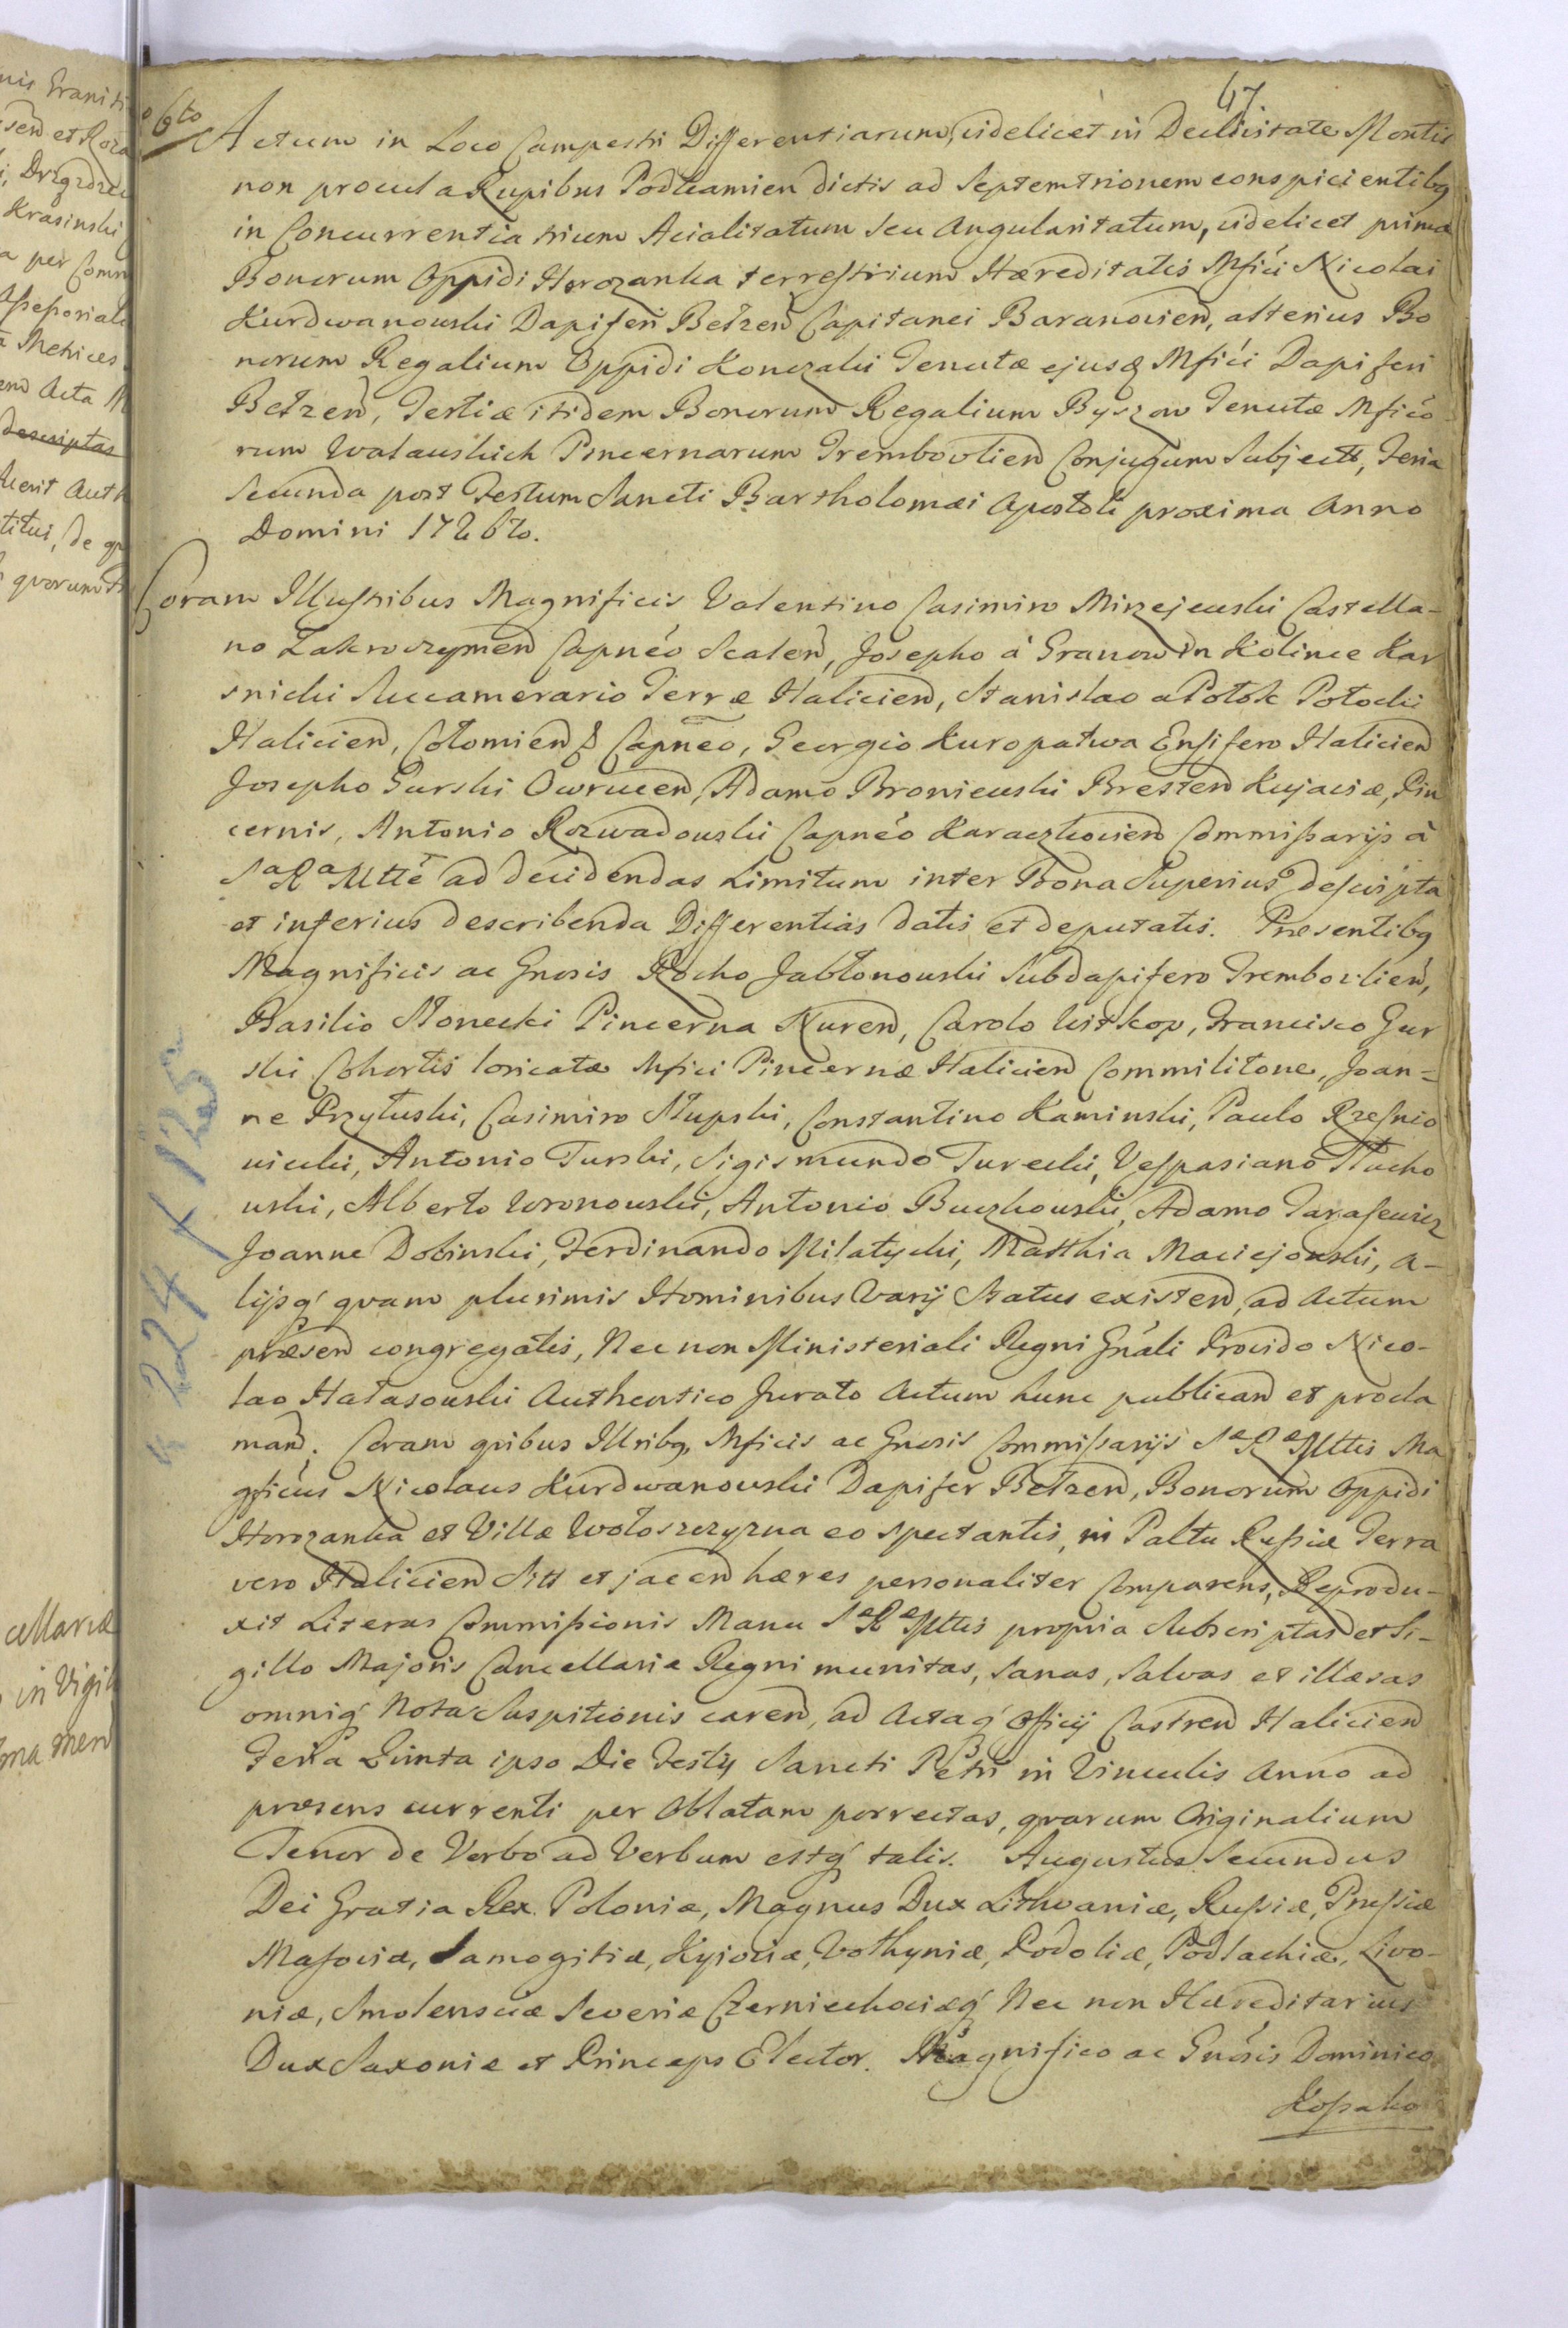 47.
6to
Actum in Loco Campestri Differentiarum, videlicet in Declivitate Montis
non procul a Rupibus Podkamien dictis ad Septemtrionem conspicientibq
in Concurrentia trium Acialitatum seu Angularitatum, videlicet prima
Bonorum Oppidi Horozanka terrestrium Hæreditatis Mfići Nicolai
Kurdwanowski Dapiferi Bełzen Capitanei Baranovien, alterius Bo
norum Regalium Oppidi Konczaki Tenutæ ejusq Mfići Dapiferi
Bełzen, Tertiæ itidem Bonorum Regalium Byszow Tenutæ Mfićo
rum Wataushich Pincernarum Trembovlien Conjugum Subjectt, Feria
Secunda post Festum Sancti Bartholomæi Apostoli proxima Anno
Domini 1726to.
Coram Illustribus Magnificis Valentino Casimiro Mirzejewski Castella-
no Zakroczymen Capnéo Scalen, Josepho à Granow in Kolince Kar
snicki Succamerario Terræ Halicien, Stanislao a Potok Potocki
Halicien, Cołomienq Capnéo, Georgio Kuropatwa Ensifero Halicien
Josepho Gurski Owrucen, Adamo Broniewski Bresten Kujaviæ, Pin
cernis, Antonio Rozwadowski Capnéo Karaczkovien Commissarijs à
Sa Ra Mtte ad decidendas Limitum inter Bona Superius descripta
et inferius describenda Differentias datis et deputatis. Præsentibq
Magnificis ac Gnosis Rocho Jabłonowski Subdapifero Trembovlien,
Basilio Słonecki Pincerna Nuren, Carolo Witskop, Francisco Gur
ski Cohortis loricatæ Mfici Pincernæ Halicien Commilitone, Joan=
ne Przyłuski, Casimiro Słupski, Constantino Kaminski, Paulo Rzesnio
wiecki, Antonio Turski, Sigismundo Turecki, Vespasiano Tłucho
wski, Alberto Woronowski, Antonio Buczkowski, Adamo Tarasewicz
Joanne Dobinski, Ferdinando Milatycki, Matthia Maciejowski, a-
lijsq quam plurimis Hominibus Varij Status existen, ad Actum
præsen congregatis, Nec non Ministeriali Regni Gnáli Provido Nico-
lao Hałasowski Authentico Jurato Actum hunc publican et procla
man. Coram quibus Illribq, Mficis ac Gnosis Commissarijs Sæ Ræ Mttis Ma
gficus Nicolaus Kurdwanowski Dapifer Bełzen, Bonorum Oppidi
Horozanka et Villæ Wołoszczyzna eo spectantis, in Paltu Russiæ Terra
vero Halicien Sitt et jacen hæres personaliter Comparens, Reprodu-
xit Literas Commissionis Manu Sæ Ræ Mttis propria Subscriptas et Si-
gillo Majoris Cancellariæ Regni munitas, sanas, salvas et illæsas
omniq Nota Suspitionis caren, ad Actaq Officij Castren Halicien
Feria Quinta ipso Die Festi Sancti Petri in Vinculis Anno ad
præsens currenti per Oblatam porrectas, quarum Originalium
Tenor de Verbo ad Verbum estq talis. Augustus Secundus
Dei Gratia Rex Poloniæ, Magnus Dux Lithvaniæ, Russiæ, Prussiæ
Masoviæ, Samogitiæ, Kyioviæ, Volhyniæ, Podoliæ, Podlachiæ, Livo-
niæ, Smolensciæ Severiæ Czerniechoviæq Nec non Hæreditarius
Dux Saxoniæ et Princeps Elector. Magnifico ac Gnósis Dominico
Kossako